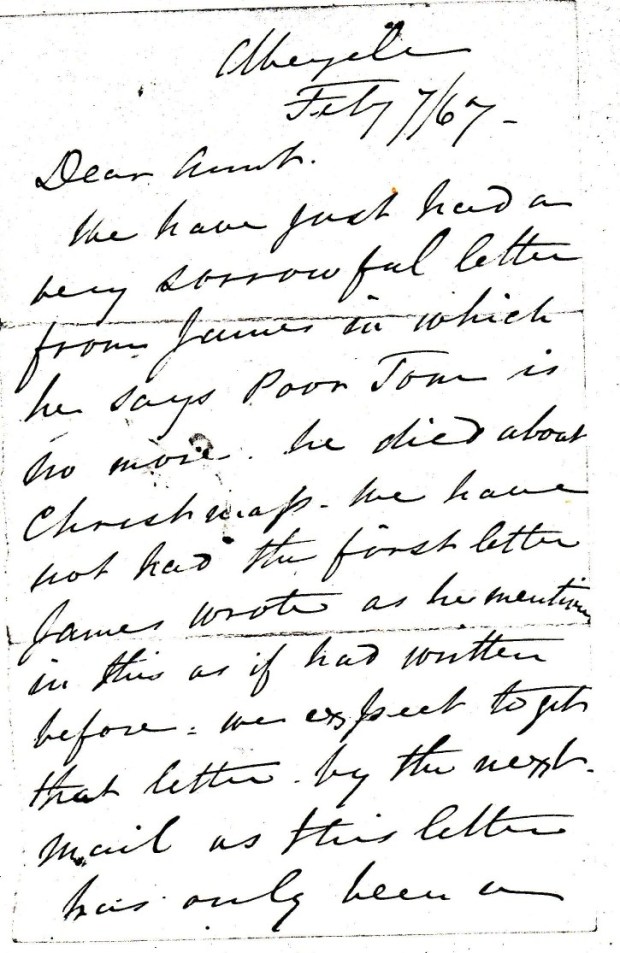 Feby 7/67-
Dear Aunt.
We have just had a
very sorrowful letter
from James in which
he says Poor Tom is
no more. he died about
Christmass. We have
not had the first letter
James wrote as he mentions
in this as if had written
before = we expect to get
that letter by the next.
mail as this letter
has only been a